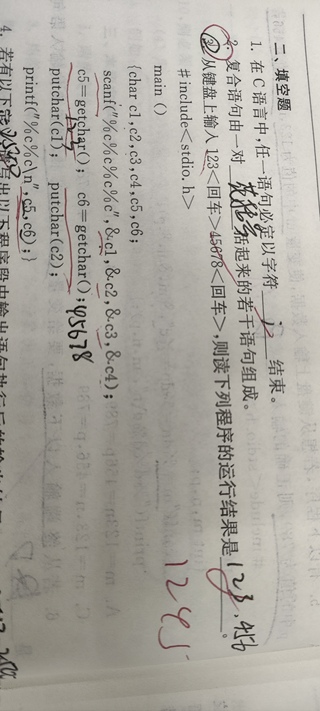 二、填空题
1. 在C语言中,任一语句必定以字符 ; 结束。
2. 复合语句由一对 花括号 括起来的若干语句组成。
③从键盘上输入 123<回车>45678<回车>,则读下列程序的运行结果是 123,456 。
#include<stdio.h>
main ()
{char c1,c2,c3,c4,c5,c6;
scanf("%c%c%c%c",&c1,&c2,&c3,&c4);
c5=getchar(); c6=getchar();
45678
putchar(c1); putchar(c2);
printf("%c%c\n",c5,c6);}
1245